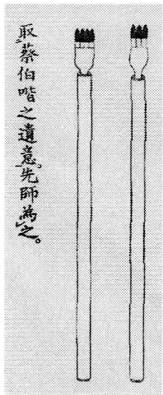 取蔡伯喈之遺意。先師為之。